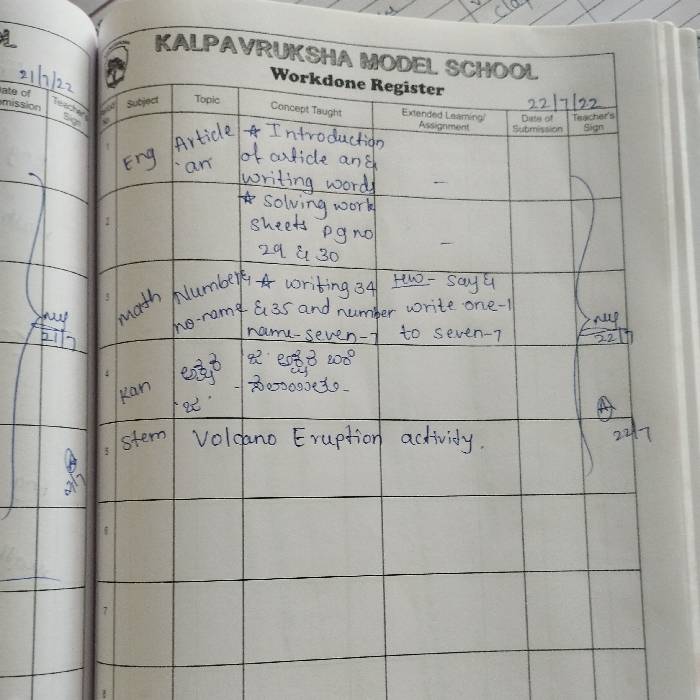 21/7/22
KALPAVRUKSHA MODEL SCHOOL
Workdone Register
22/7/22
Date of Submission
Teacher's Sign
Subject Topic Concept Taught Extended Learning/ Assignment Date of Submission Teacher's Sign
1 Eng Article 'an' ☆ Introduction
of article an &
writing words -
2 ☆ Solving work
sheets pg no
29 & 30 -
3 Math Number & ☆ writing 34 HW- Say &
no-name & 35 and number write one-1
name-seven-7 to seven-7
21/7
22/7
4 Kan
5 Stem Volcano Eruption activity.
22/7
6
7
8